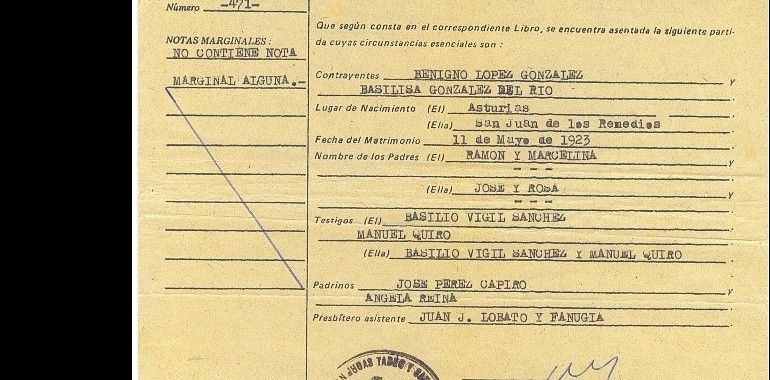 Número -471-
NOTAS MARGINALES:
NO CONTIENE NOTA
MARGINAL ALGUNA.-
Que según consta en el correspondiente Libro, se encuentra asentada la siguiente parti-
da cuyas circunstancias esenciales son:
Contrayentes BENIGNO LOPEZ GONZALEZ y
BASILISA GONZALEZ DEL RIO
Lugar de Nacimiento (El) Asturias
(Ella) San Juan de los Remedios
Fecha del Matrimonio 11 de Mayo de 1923
Nombre de los Padres (El) RAMON Y MARCELINA
--- y
(Ella) JOSE Y ROSA
--- y
Testigos (El) BASILIO VIGIL SANCHEZ
MANUEL QUIRO
(Ella) BASILIO VIGIL SANCHEZ Y MANUEL QUIRO
Padrinos JOSE PEREZ CAPIRO y
ANGELA REINA
Presbítero asistente JUAN J. LOBATO Y FANUGIA
JUDAS TADEO Y